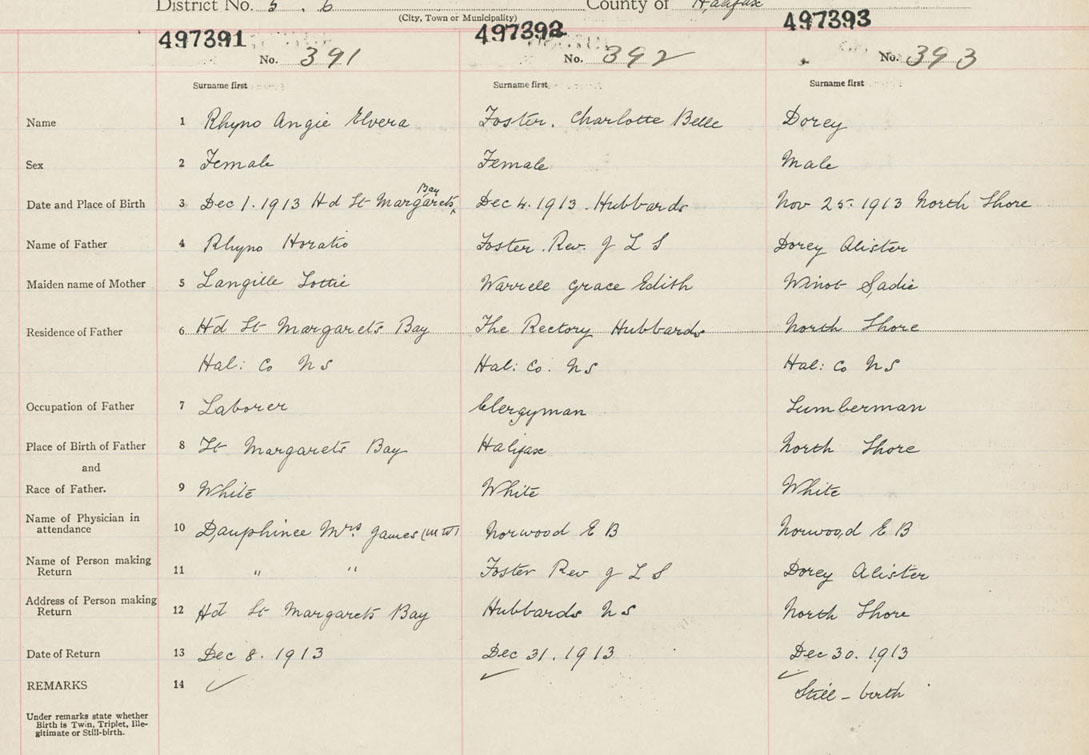 District No. 5 . 6 County of Halifax
(City, Town or Municipality)
497391 497392 497393
No. 391 No. 392 No. 393
Surname first Surname first Surname first
Name 1 Rhyno Angie Elvera Foster. Charlotte Belle Dorey
Sex 2 Female Female Male
Bay
Date and Place of Birth 3 Dec 1. 1913 Hd St Margarets Dec 4. 1913. Hubbards Nov 25. 1913 North Shore
Name of Father 4 Rhyno Horatio Foster. Rev. J L S Dorey Alister
Maiden name of Mother 5 Langille Lottie Warrell Grace Edith Winot Sadie
Residence of Father 6 Hd St Margarets Bay The Rectory Hubbards North Shore
Hal: Co N S Hal: Co. N S Hal: Co N S
Occupation of Father 7 Laborer Clergyman Lumberman
Place of Birth of Father 8 St Margarets Bay Halifax North Shore
and
Race of Father. 9 White White White
Name of Physician in
attendance 10 Dauphinee Mrs James (M W) Norwood E B Norwood E B
Name of Person making
Return 11 " " Foster Rev J L S Dorey Alister
Address of Person making
Return 12 Hd St Margarets Bay Hubbards N S North Shore
Date of Return 13 Dec 8. 1913 Dec 31. 1913 Dec 30. 1913
REMARKS 14 Still-birth
Under remarks state whether
Birth is Twin, Triplet, Ille-
gitimate or Still-birth.